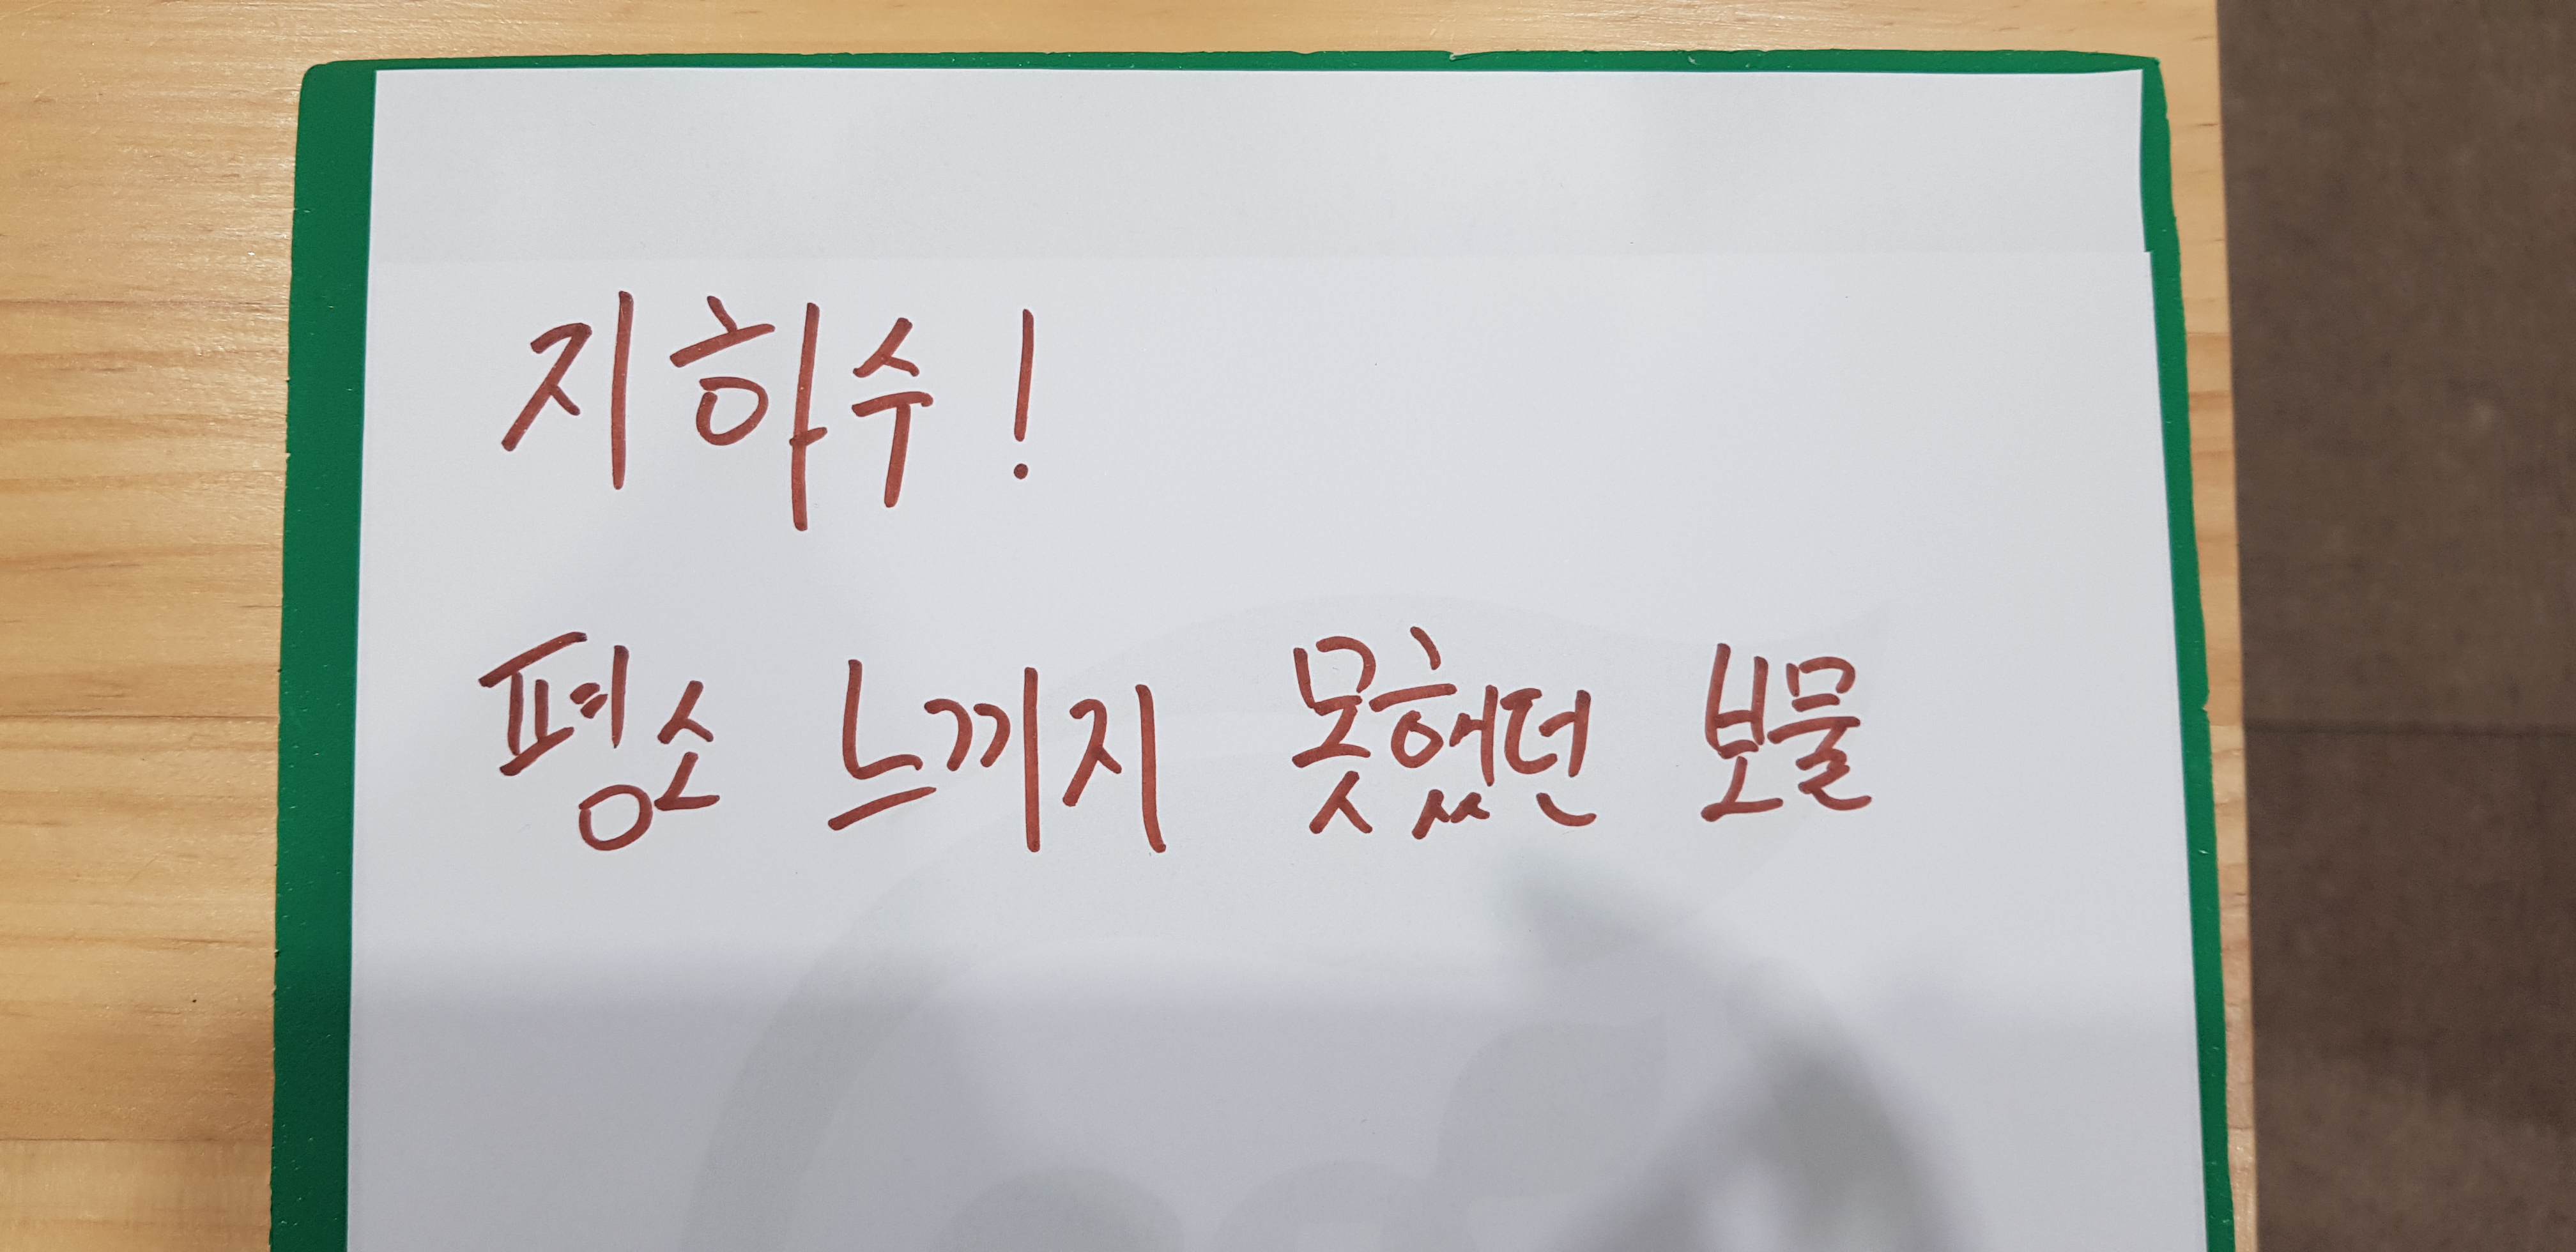 지하수!
평소 느끼지 못했던 보물